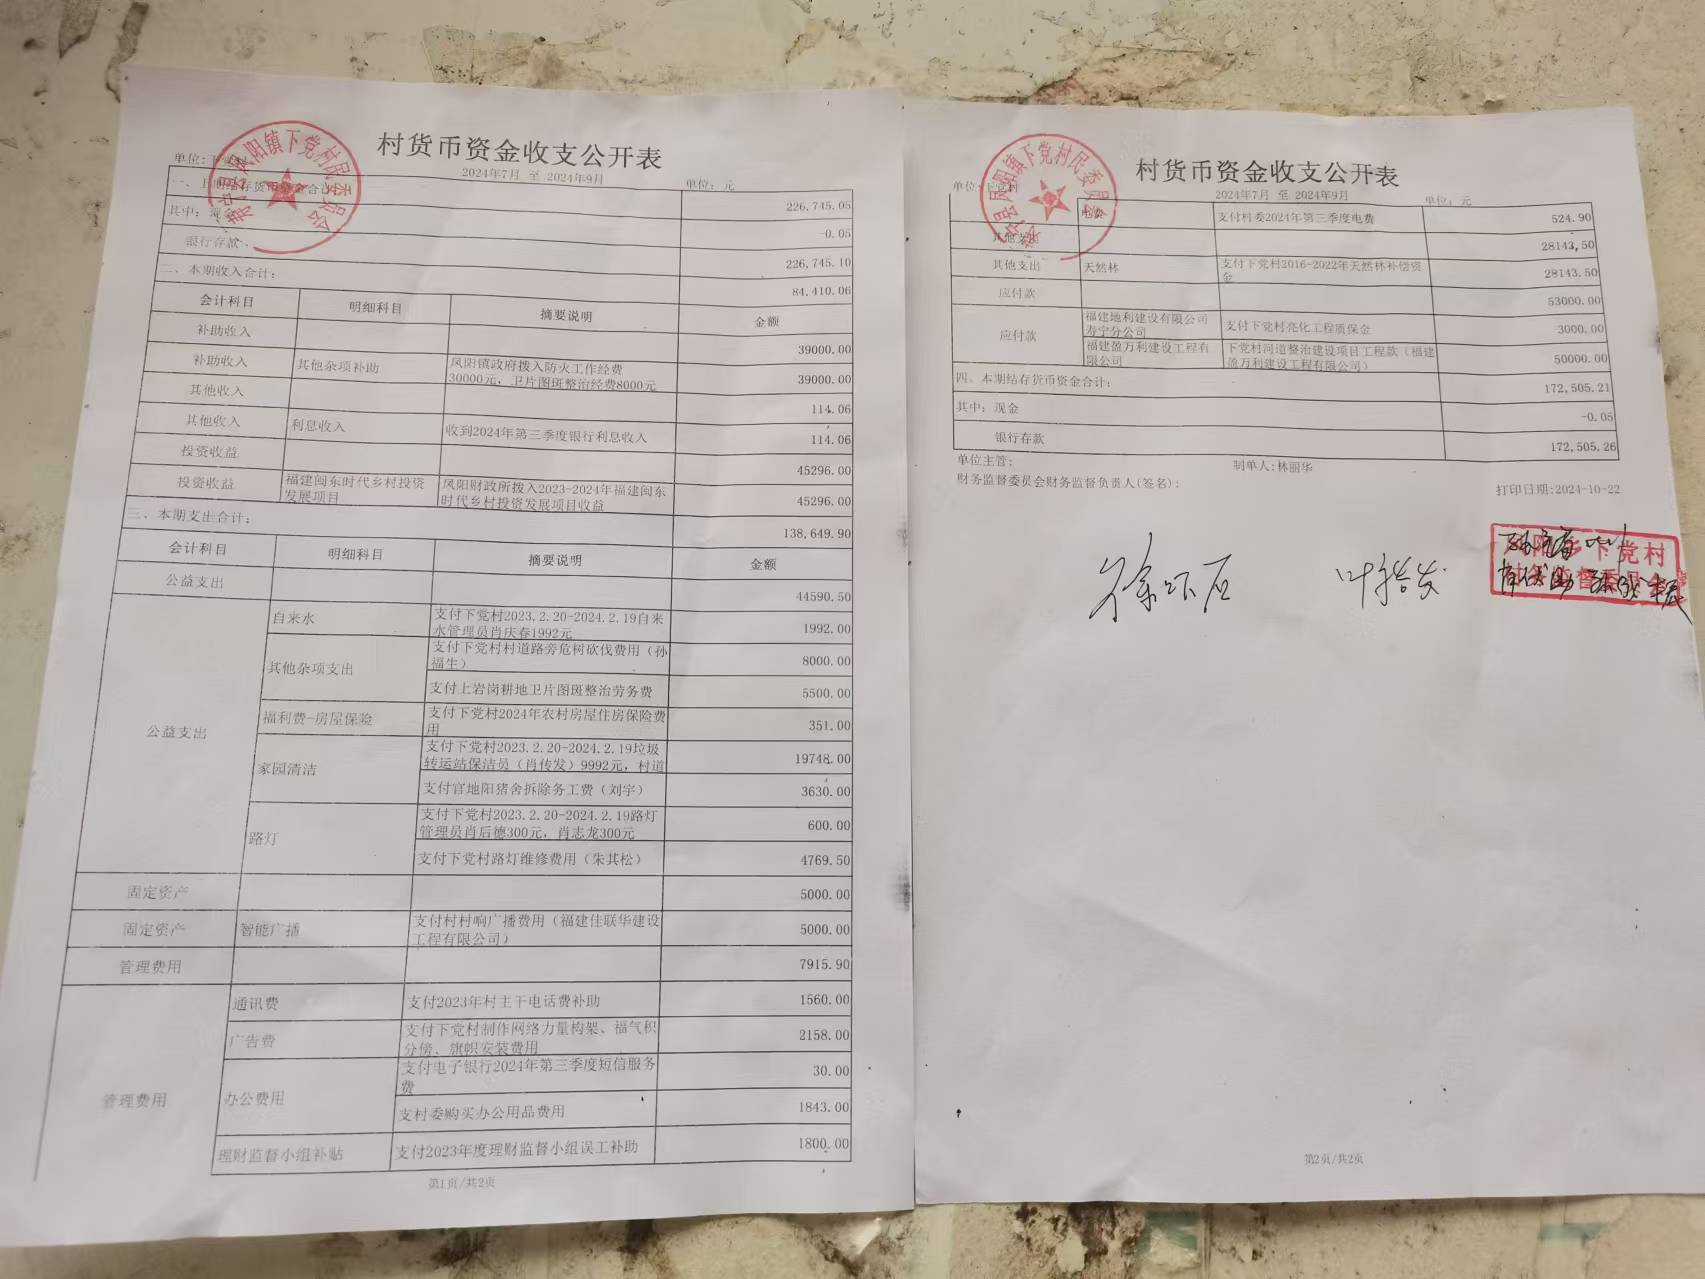 村货币资金收支公开表
2024年7月 至 2024年9月
单位:下党村
单位: 元
寿宁县凤阳镇下党村民委员会
一、上期结存货币资金合计: 226,745.05
其中: 现金 -0.05
银行存款 226,745.10
二、本期收入合计: 84,410.06
会计科目 明细科目 摘要说明 金额
补助收入 39000.00
补助收入 其他杂项补助 凤阳镇政府拨入防火工作经费
30000元, 卫片图斑整治经费8000元 39000.00
其他收入 114.06
其他收入 利息收入 收到2024年第三季度银行利息收入 114.06
投资收益 45296.00
投资收益 福建闽东时代乡村投资
发展项目 凤阳财政所拨入2023-2024年福建闽东
时代乡村投资发展项目收益 45296.00
三、本期支出合计: 138,649.90
会计科目 明细科目 摘要说明 金额
公益支出 44590.50
公益支出
自来水 支付下党村2023.2.20-2024.2.19自来
水管理员肖庆春1992元 1992.00
其他杂项支出 支付下党村村道路旁危树砍伐费用(孙
福生) 8000.00
支付上岩岗耕地卫片图斑整治劳务费 5500.00
福利费-房屋保险 支付下党村2024年农村房屋住房保险费
用 351.00
家园清洁 支付下党村2023.2.20-2024.2.19垃圾
转运站保洁员(肖传发)9992元, 村道 19748.00
支付官地阳猪舍拆除务工费(刘宇) 3630.00
路灯 支付下党村2023.2.20-2024.2.19路灯
管理员肖后德300元, 肖志龙300元 600.00
支付下党村路灯维修费用(朱其松) 4769.50
固定资产 5000.00
固定资产 智能广播 支付村村响广播费用(福建佳联华建设
工程有限公司) 5000.00
管理费用 7915.90
管理费用
通讯费 支付2023年村主干电话费补助 1560.00
广告费 支付下党村制作网络力量构架、福气积
分傍、旗帜安装费用 2158.00
办公费用 支付电子银行2024年第三季度短信服务
费 30.00
支村委购买办公用品费用 1843.00
理财监督小组补贴 支付2023年度理财监督小组误工补助 1800.00
第1页/共2页
村货币资金收支公开表
2024年7月 至 2024年9月
单位:下党村
单位: 元
寿宁县凤阳镇下党村民委员会
电费 支付村委2024年第三季度电费 524.90
其他支出 28143.50
其他支出 天然林 支付下党村2016-2022年天然林补偿资
金 28143.50
应付款 53000.00
应付款 福建地利建设有限公司
寿宁分公司 支付下党村亮化工程质保金 3000.00
福建盈万利建设工程有
限公司 下党村河道整治建设项目工程款(福建
盈万利建设工程有限公司) 50000.00
四、本期结存货币资金合计: 172,505.21
其中: 现金 -0.05
银行存款 172,505.26
单位主管:
制单人:林丽华
财务监督委员会财务监督负责人(签名):
打印日期:2024-10-22
下党村
财务监督委员会
第2页/共2页